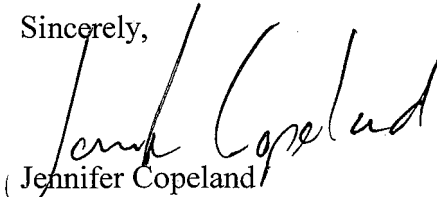 Sincerely,
Copeland
Jennifer Copeland